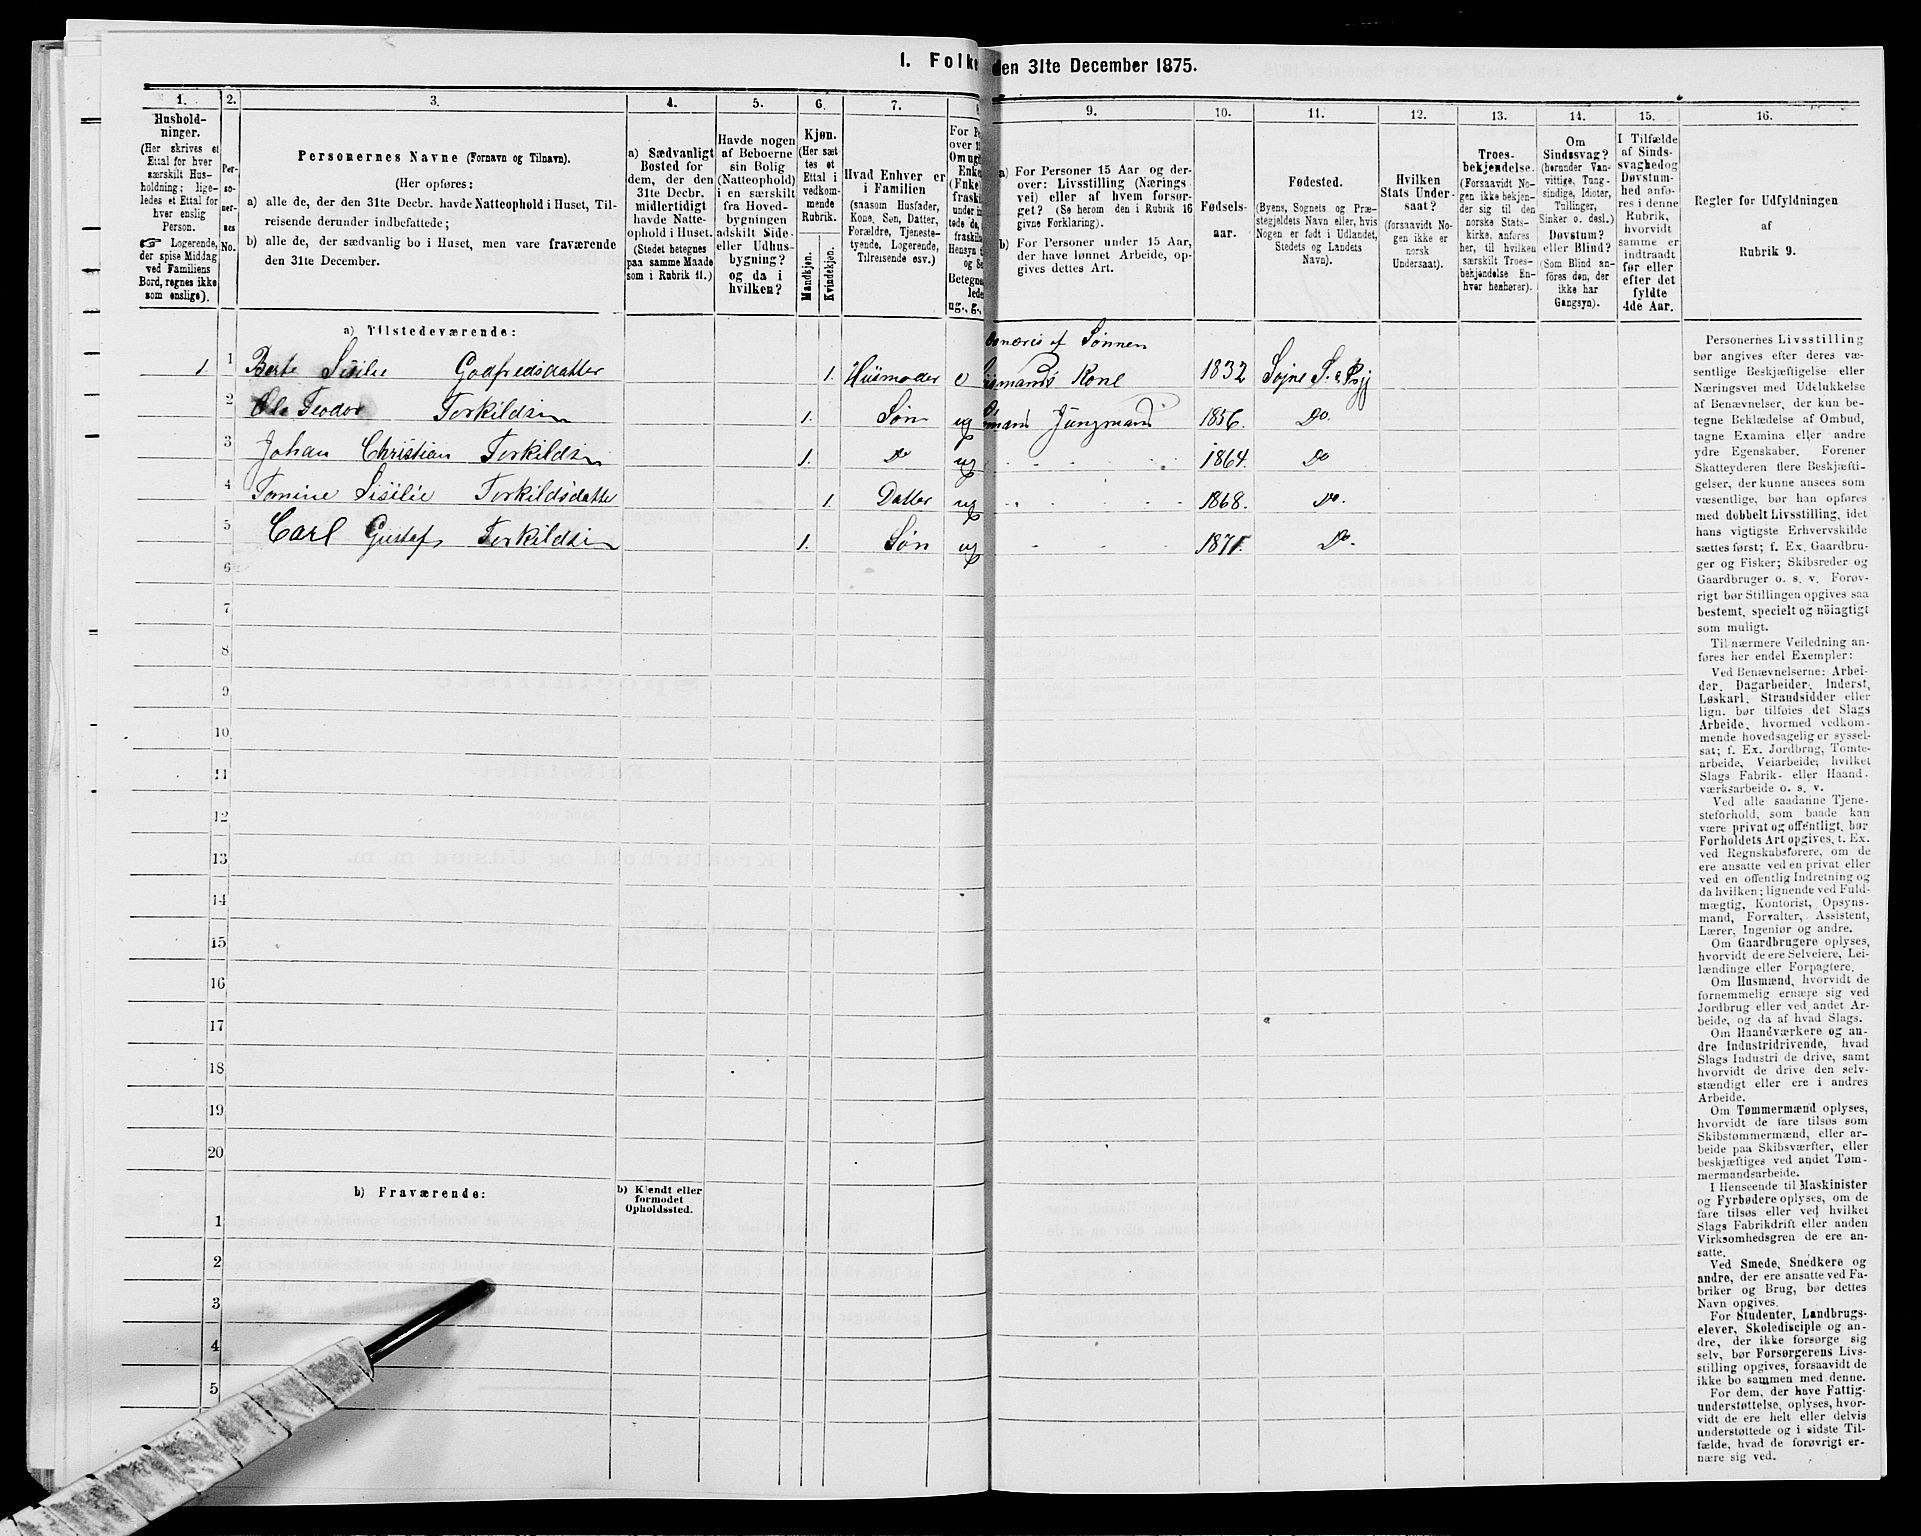 1. Folke
den 31te December 1875.
1.
Hushold-
ninger.
(Her skrives et
Ettal for hver
særskilt Hus-
holdning; lige-
ledes et Ettal for
hver enslig
Person.
☞ Logerende,
der spise Middag
ved Familiens
Bord, regnes ikke
som enslige).
2.
Per-
so-
ner-
nes
No.
3.
Personernes Navne (Fornavn og Tilnavn).
(Her opføres:
a) alle de, der den 31te Decbr. havde Natteophold i Huset, Til-
reisende derunder indbefattede;
b) alle de, der sædvanlig bo i Huset, men vare fraværende
den 31te December.
4.
a) Sædvanligt
Bosted for
dem, der den
31te Decbr.
midlertidigt
havde Natte-
ophold i Huset.
(Stedet betegnes
paa samme Maade
som i Rubrik 11.)
5.
Havde nogen
af Beboerne
sin Bolig
(Natteophold)
i en særskilt
fra Hoved-
bygningen
adskilt Side-
eller Udhus-
bygning?
og da i
hvilken?
6.
Kjøn.
(Her sæt-
tes et
Ettal i
vedkom-
mende
Rubrik.
Mandkjøn.
Kvindekjøn.
7.
Hvad Enhver er
i Familien
(saasom Husfader,
Kone, Søn, Datter,
Forældre, Tjeneste-
tyende, Logerende,
Tilreisende osv.)
8
For P
over 1
Om ugi
Enke
(Enkel
fraskil
under in
tede de,
fraskilt
Hensyn t
og Se
Betegne
lede
ug., g.,
9.
a) For Personer 15 Aar og der-
over: Livsstilling (Nærings
vei) eller af hvem forsør-
get? (Se herom den i Rubrik 16
givne Forklaring).
b) For Personer under 15 Aar,
der have lønnet Arbeide, op-
gives dettes Art.
10.
Fødsels-
aar.
11.
Fødested.
(Byens, Sognets og Præ-
stegjeldets Navn eller, hvis
Nogen er født i Udlandet,
Stedets og Landets
Navn).
12.
Hvilken
Stats Under-
saat?
(forsaavidt No-
gen ikke er
norsk
Undersaat).
13.
Troes-
bekjendelse.
(Forsaavidt No-
gen ikke bekjen-
der sig til den
norske Stats-
kirke, anføres
her, til hvilken
særskilt Troes-
bekjendelse En-
hver henhører).
14.
Om
Sindssvag?
(herunder Van-
vittige, Tung-
sindige, Idioter,
Tillinger,
Sinker o. desl.)
Døvstum?
eller Blind?
(Som Blind an-
føres den, der
ikke har
Gangsyn).
15.
I Tilfælde
af Sinds-
svaghed og
Døvstum-
hed anfø-
res i denne
Rubrik,
hvorvidt
samme er
indtraadt
før eller
efter det
fyldte
4de Aar.
16.
Regler for Udfyldningen
af
Rubrik 9.
a) Tilstedeværende:
ernæris af Sønnen
1 1 Berte Sisilie Godfredsdatter 1. Husmoder e mands Kone 1832 Sogne S. &
2 Ole Teodor Terkildsen 1. Søn ug mand Jungmand 1856. Do.
3 Johan Christian Terkildsen 1. Do ug 1864. Do
4 Tomine Sisilie Terkildsdatte 1. Datter ug 1868. Do.
5 Carl Gustaf Terkildsen 1. Søn ug 1871. Do.
6
7
8
9
10
11
12
13
14
15
16
17
18
19
20
b) Fraværende:
b) Kjendt eller
formodet
Opholdssted.
1
2
3
4
5
Personernes Livsstilling
bør angives efter deres væ-
sentlige Beskjæftigelse eller
Næringsvei med Udelukkelse
af Benævnelser, der kun be-
tegne Beklædelse af Ombud,
tagne Examina eller andre
ydre Egenskaber. Forener
Skatteyderen flere Beskjæfti-
gelser, der kunne ansees som
væsentlige, bør han opføres
med dobbelt Livsstilling, idet
hans vigtigste Erhvervskilde
sættes først; f. Ex. Gaardbru-
ger og Fisker; Skibsreder og
Gaardbruger o. s. v. Forøv-
rigt bør Stillingen opgives saa
bestemt, specielt og nöiagtigt
som muligt.
Til nærmere Veiledning an-
føres her endel Exempler:
Ved Benævnelserne: Arbei-
der, Dagarbeider, Inderst,
Løskarl, Strandsidder eller
lign. bør tilføies det Slags
Arbeide, hvormed vedkom-
mende hovedsagelig er syssel-
sat; f. Ex. Jordbrug, Tomte-
arbeide, Veiarbeide, hvilket
Slags Fabrik- eller Haand-
værksarbeide o. s. v.
Ved alle saadanne Tjene-
steforhold, som baade kan
være privat og offentligt, bør
Forholdets Art opgives, t. Ex.
ved Regnskabsførere, om de
ere ansatte ved en privat eller
ved en offentlig Indretning og
da hvilken; lignende ved Fuld-
mægtig, Kontorist, Opsyns-
mand, Forvalter, Assistent,
Lærer, Ingeniør og andre.
Om Gaardbrugere oplyses,
hvorvidt de ere Selveiere, Lei-
lændinge eller Forpagtere.
Om Husmænd, hvorvidt de
fornemmelig ernære sig ved
Jordbrug eller ved andet Ar-
beide, og da af hvad Slags.
Om Haandværkere og an-
dre Industridrivende, hvad
Slags Industri de drive, samt
hvorvidt de drive den selv-
stændigt eller ere i andres
Arbeide.
Om Tømmermænd oplyses,
hvorvidt de fare tilsøs som
Skibstømmermænd, eller ar-
beide paa Skibsværfter, eller
beskjæftiges ved andet Tøm-
mermandsarbeide.
I Henseende til Maskinister
og Fyrbødere oplyses, om de
fare tilsøs eller ved hvilket
Slags Fabrikdrift eller anden
Virksomhedsgren de ere an-
satte.
Ved Smede, Snedkere og
andre, der ere ansatte ved Fa-
briker og Brug, bør dettes
Navn opgives.
For Studenter, Landbrugs-
elever, Skoledisciple og an-
dre, der ikke forsørge sig
selv, bør Forsørgerens Livs-
stilling opgives, forsaavidt de
ikke bo sammen med denne.
For dem, der have Fattig-
understøttelse, oplyses, hvor-
vidt de ere helt eller delvis
understøttede og i sidste Til-
fælde, hvad de forøvrigt er-
nære sig ved.